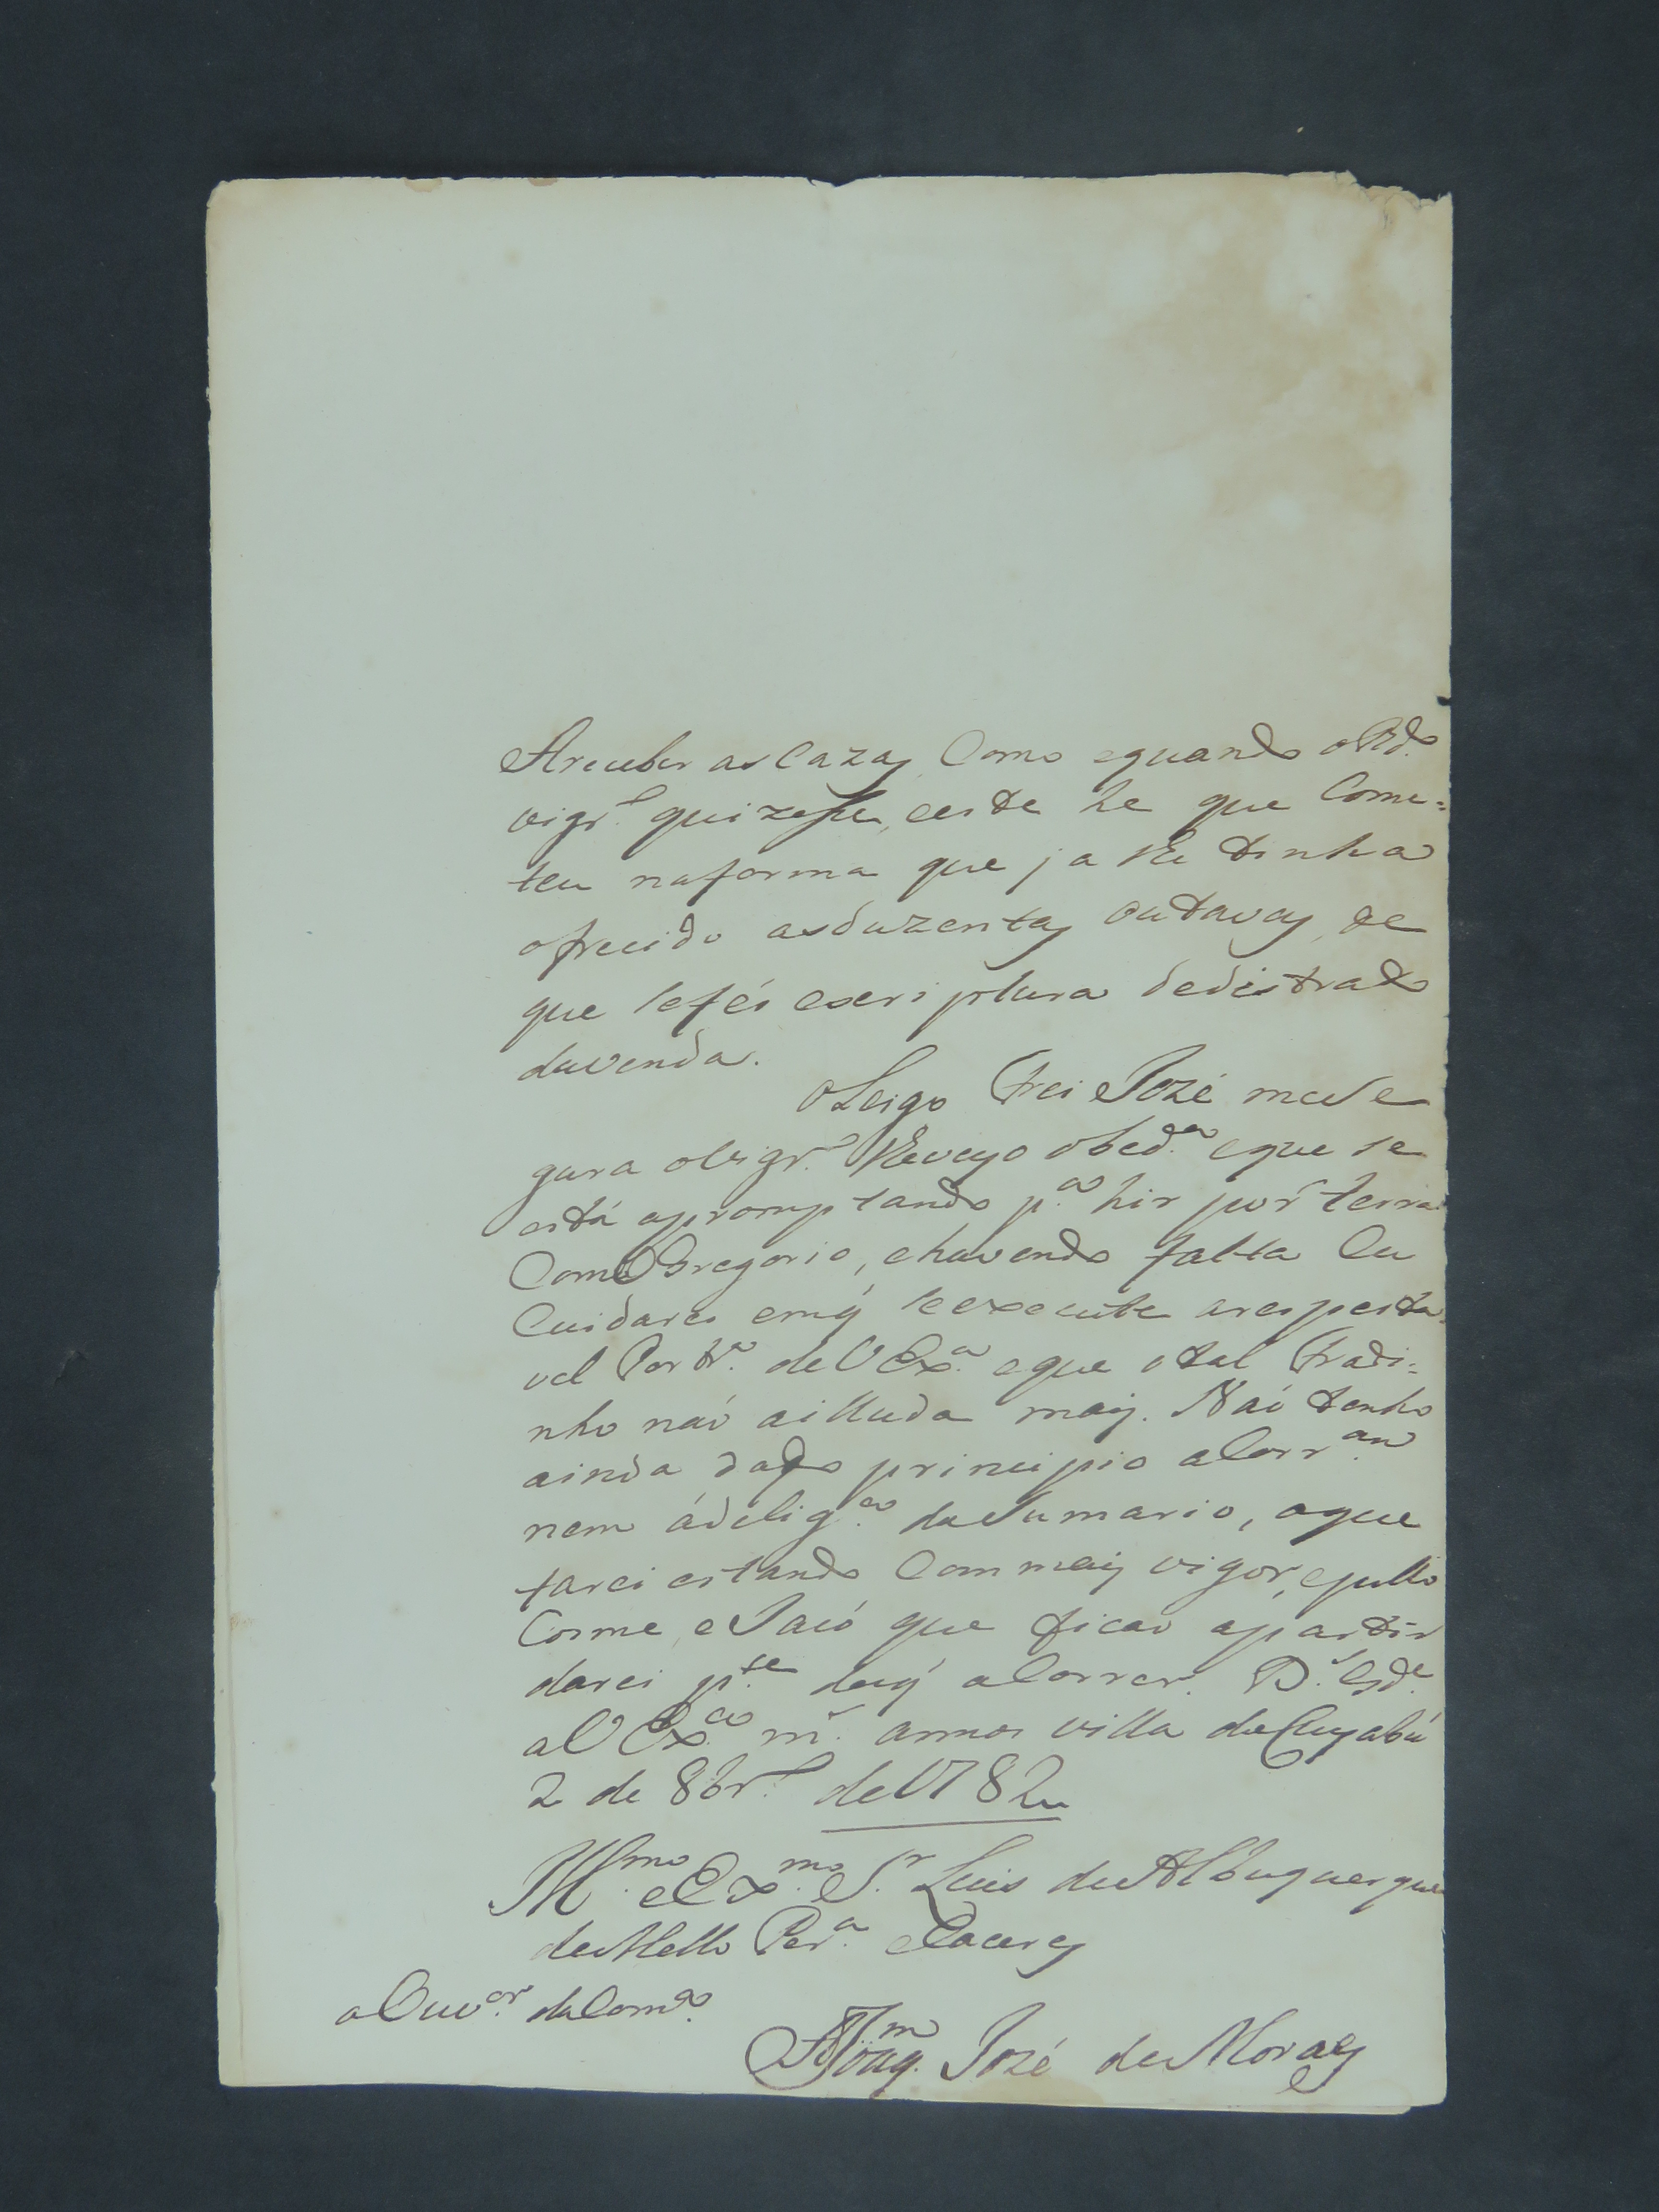 Areceber as Cazas, Como equando oRdo.
vigro. quizesse, eeste he que Come=
teu naforma que ja Me tinha
ofrecido asduzentas outavas, de
que sefés escriptura dedistrato
davenda.
OLeigo Frei José mese
gura oVigro. obeda. eque se
está apromptando pa. hir por terra
Com Gregorio, ehavendo falta eu
Cuidarei emq̃ seexecute arespeita
vel Portra. deVExa. eque otal Fradi=
nho naõ ailluda mais. Naõ tenho
ainda dado principio aCorram.
nem ádeliga. deSumario, oque
farei estando Com mais vigor, epello
Cosme eJacó que ficaõ apartir
darei pte. doq̃ aCorrer. Ds. Gde.
aVExa. ms. annos villa doCuyabá
2 de 8bro. de1782
Illmo. eExmo. Sr. Luis deAlbuquerque
deMello Pera. eCaceres
oOuvor. daComca.
Antonio José de Moraes